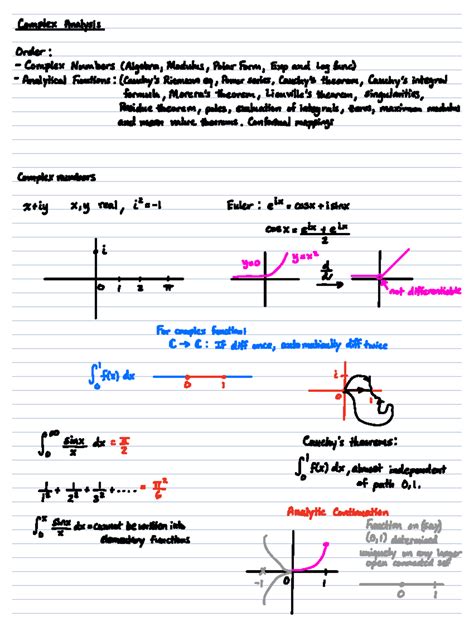 Complex Analysis
Order:
- Complex Numbers (Algebra, Modulus, Polar Form, Exp and Log func)
- Analytical Functions: (Cauchy's Riemann eq, Power series, Cauchy's theorem, Cauchy's integral
formula, Morera's theorem, Liouville's theorem, singularities,
Residue theorem, poles, evaluation of integrals, zeros, maximum modulus
and mean value theorems. Conformal mappings
Complex numbers
x+iy x,y real, i²=-1 Euler: e^ix = cosx + isinx
cosx = (e^ix + e^ix)/2
i
0 1 2 π
y=0 y=x²
d/dx
not differentiable
For complex function!
ℂ → ℂ: If diff once, automatically diff twice
∫₀¹ f(x) dx
0 1
i 0 1
∫₀^∞ sinx/x dx = π/2
Cauchy's theorems:
∫₀¹ f(x) dx, almost independent
of path 0,1.
1/1² + 1/2² + 1/3² + .... = π²/6
∫₀ˣ sinx/x dx = cannot be written into
elementary functions
Analytic Continuation
-1 0 1
Function on (say)
(0,1) determined
uniquely on any larger
open connected set
0 1